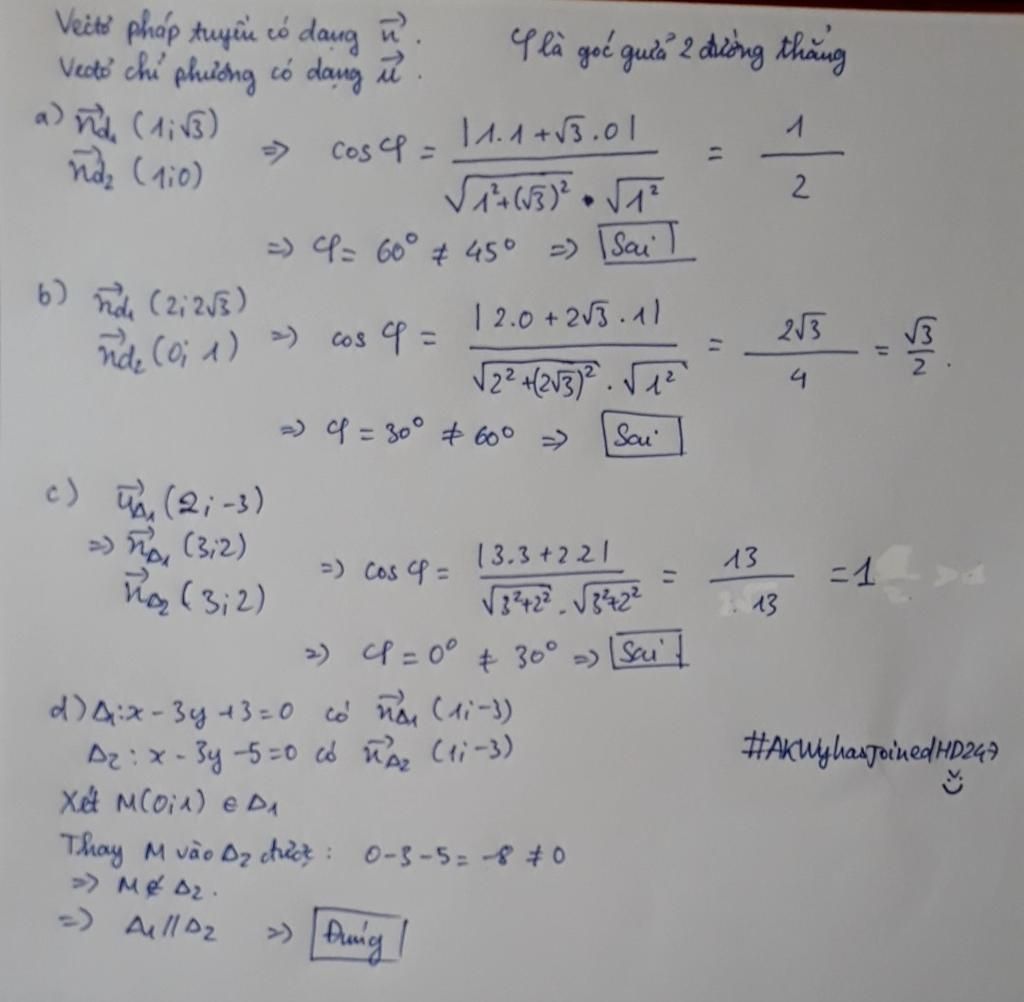 Vectơ pháp tuyến có dạng n⃗. φ là góc giữa 2 đường thẳng
Vectơ chỉ phương có dạng u⃗.
a) n⃗d₁ (1;√3)
n⃗d₂ (1;0) => cos φ = |1.1 + √3.0| / (√(1²+(√3)²) . √1²) = 1/2
=> φ = 60° ≠ 45° => Sai
b) n⃗d₁ (2;2√3)
n⃗d₂ (0;1) => cos φ = |2.0 + 2√3.1| / (√(2²+(2√3)²) . √1²) = 2√3/4 = √3/2.
=> φ = 30° ≠ 60° => Sai
c) u⃗Δ₁ (2;-3)
=> n⃗Δ₁ (3;2)
n⃗Δ₂ (3;2) => cos φ = |3.3 + 2.2| / (√(3²+2²) . √(3²+2²)) = 13/13 = 1
=> φ = 0° ≠ 30° => Sai
d) Δ₁: x - 3y + 3 = 0 có n⃗Δ₁ (1;-3)
Δ₂: x - 3y - 5 = 0 có n⃗Δ₂ (1;-3)
#AKWyhasJoinedHD247
Xét M(0;1) ∈ Δ₁
Thay M vào Δ₂ được: 0-3-5 = -8 ≠ 0
=> M ∉ Δ₂.
=> Δ₁ // Δ₂ => Đúng